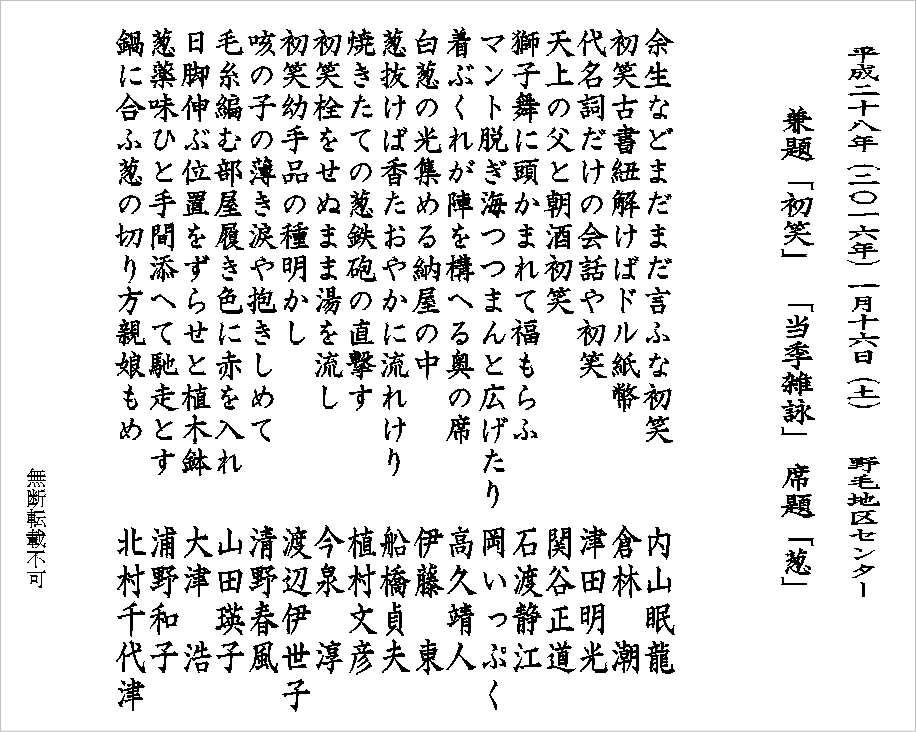 平成二十八年(二〇一六年)一月十六日(土) 野毛地区センター
兼題「初笑」 「当季雑詠」 席題「葱」
余生などまだまだ言ふな初笑 内山眠龍
初笑古書紐解けばドル紙幣 倉林 潮
代名詞だけの会話や初笑 津田明光
天上の父と朝酒初笑 関谷正道
獅子舞に頭かまれて福もらふ 石渡静江
マント脱ぎ海つつまんと広げたり 岡いっぷく
着ぶくれが陣を構へる奥の席 高久靖人
白葱の光集める納屋の中 伊藤 東
葱抜けば香たおやかに流れけり 船橋貞夫
焼きたての葱鉄砲の直撃す 植村文彦
初笑栓をせぬまま湯を流し 今泉 淳
初笑幼手品の種明かし 渡辺伊世子
咳の子の薄き涙や抱きしめて 清野春風
毛糸編む部屋履き色に赤を入れ 山田瑛子
日脚伸ぶ位置をずらせと植木鉢 大津 浩
葱薬味ひと手間添へて馳走とす 浦野和子
鍋に合ふ葱の切り方親娘もめ 北村千代津
無断転載不可